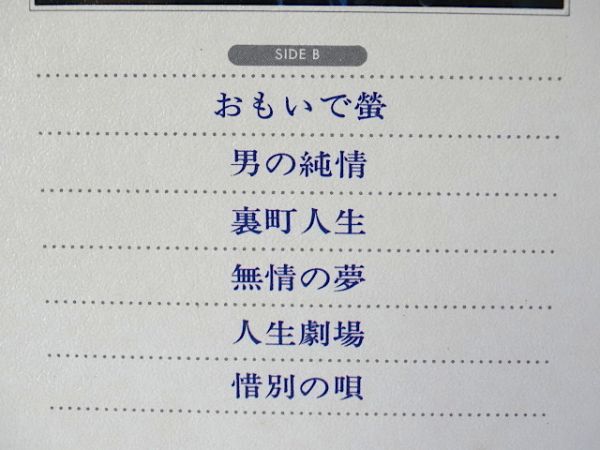 SIDE B
おもいで螢
男の純情
裏町人生
無情の夢
人生劇場
惜別の唄